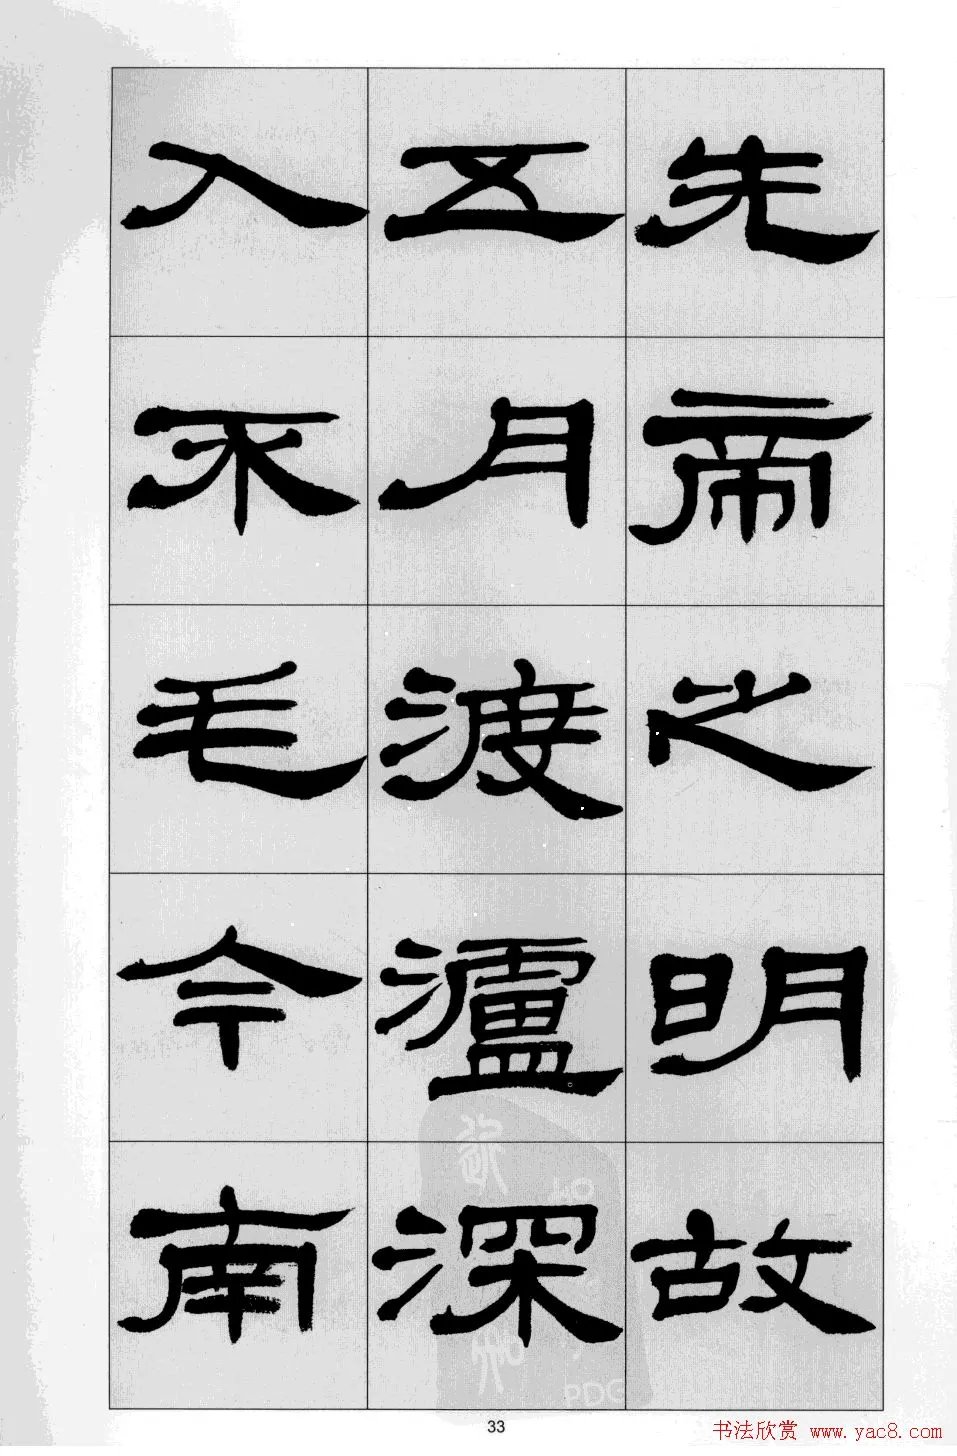 先帝之明故
五月渡瀘深
入不毛今南
33
书法欣赏 www.yac8.com